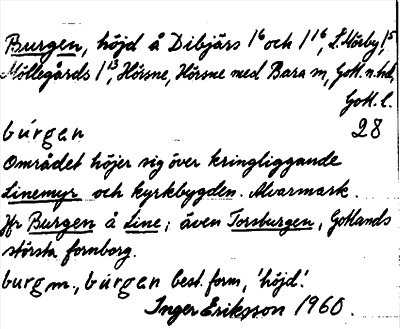 Burgen, höjd å Dibjärs 1⁶ och 1¹⁶, L. Hörby, 1⁵
Möllegårds 1¹³, Hörsne, Hörsne med Bara sn, Gotl. n. hd,
Gotl. l.
búrgen 28
Området höjer sig över kringliggande
Linemyr och kyrkbygden. Alvarmark.
Jfr Burgen å Line; även Torsburgen, Gotlands
största fornborg.
burg m., búrgen best. form, 'höjd'.
Inger Eriksson 1960.